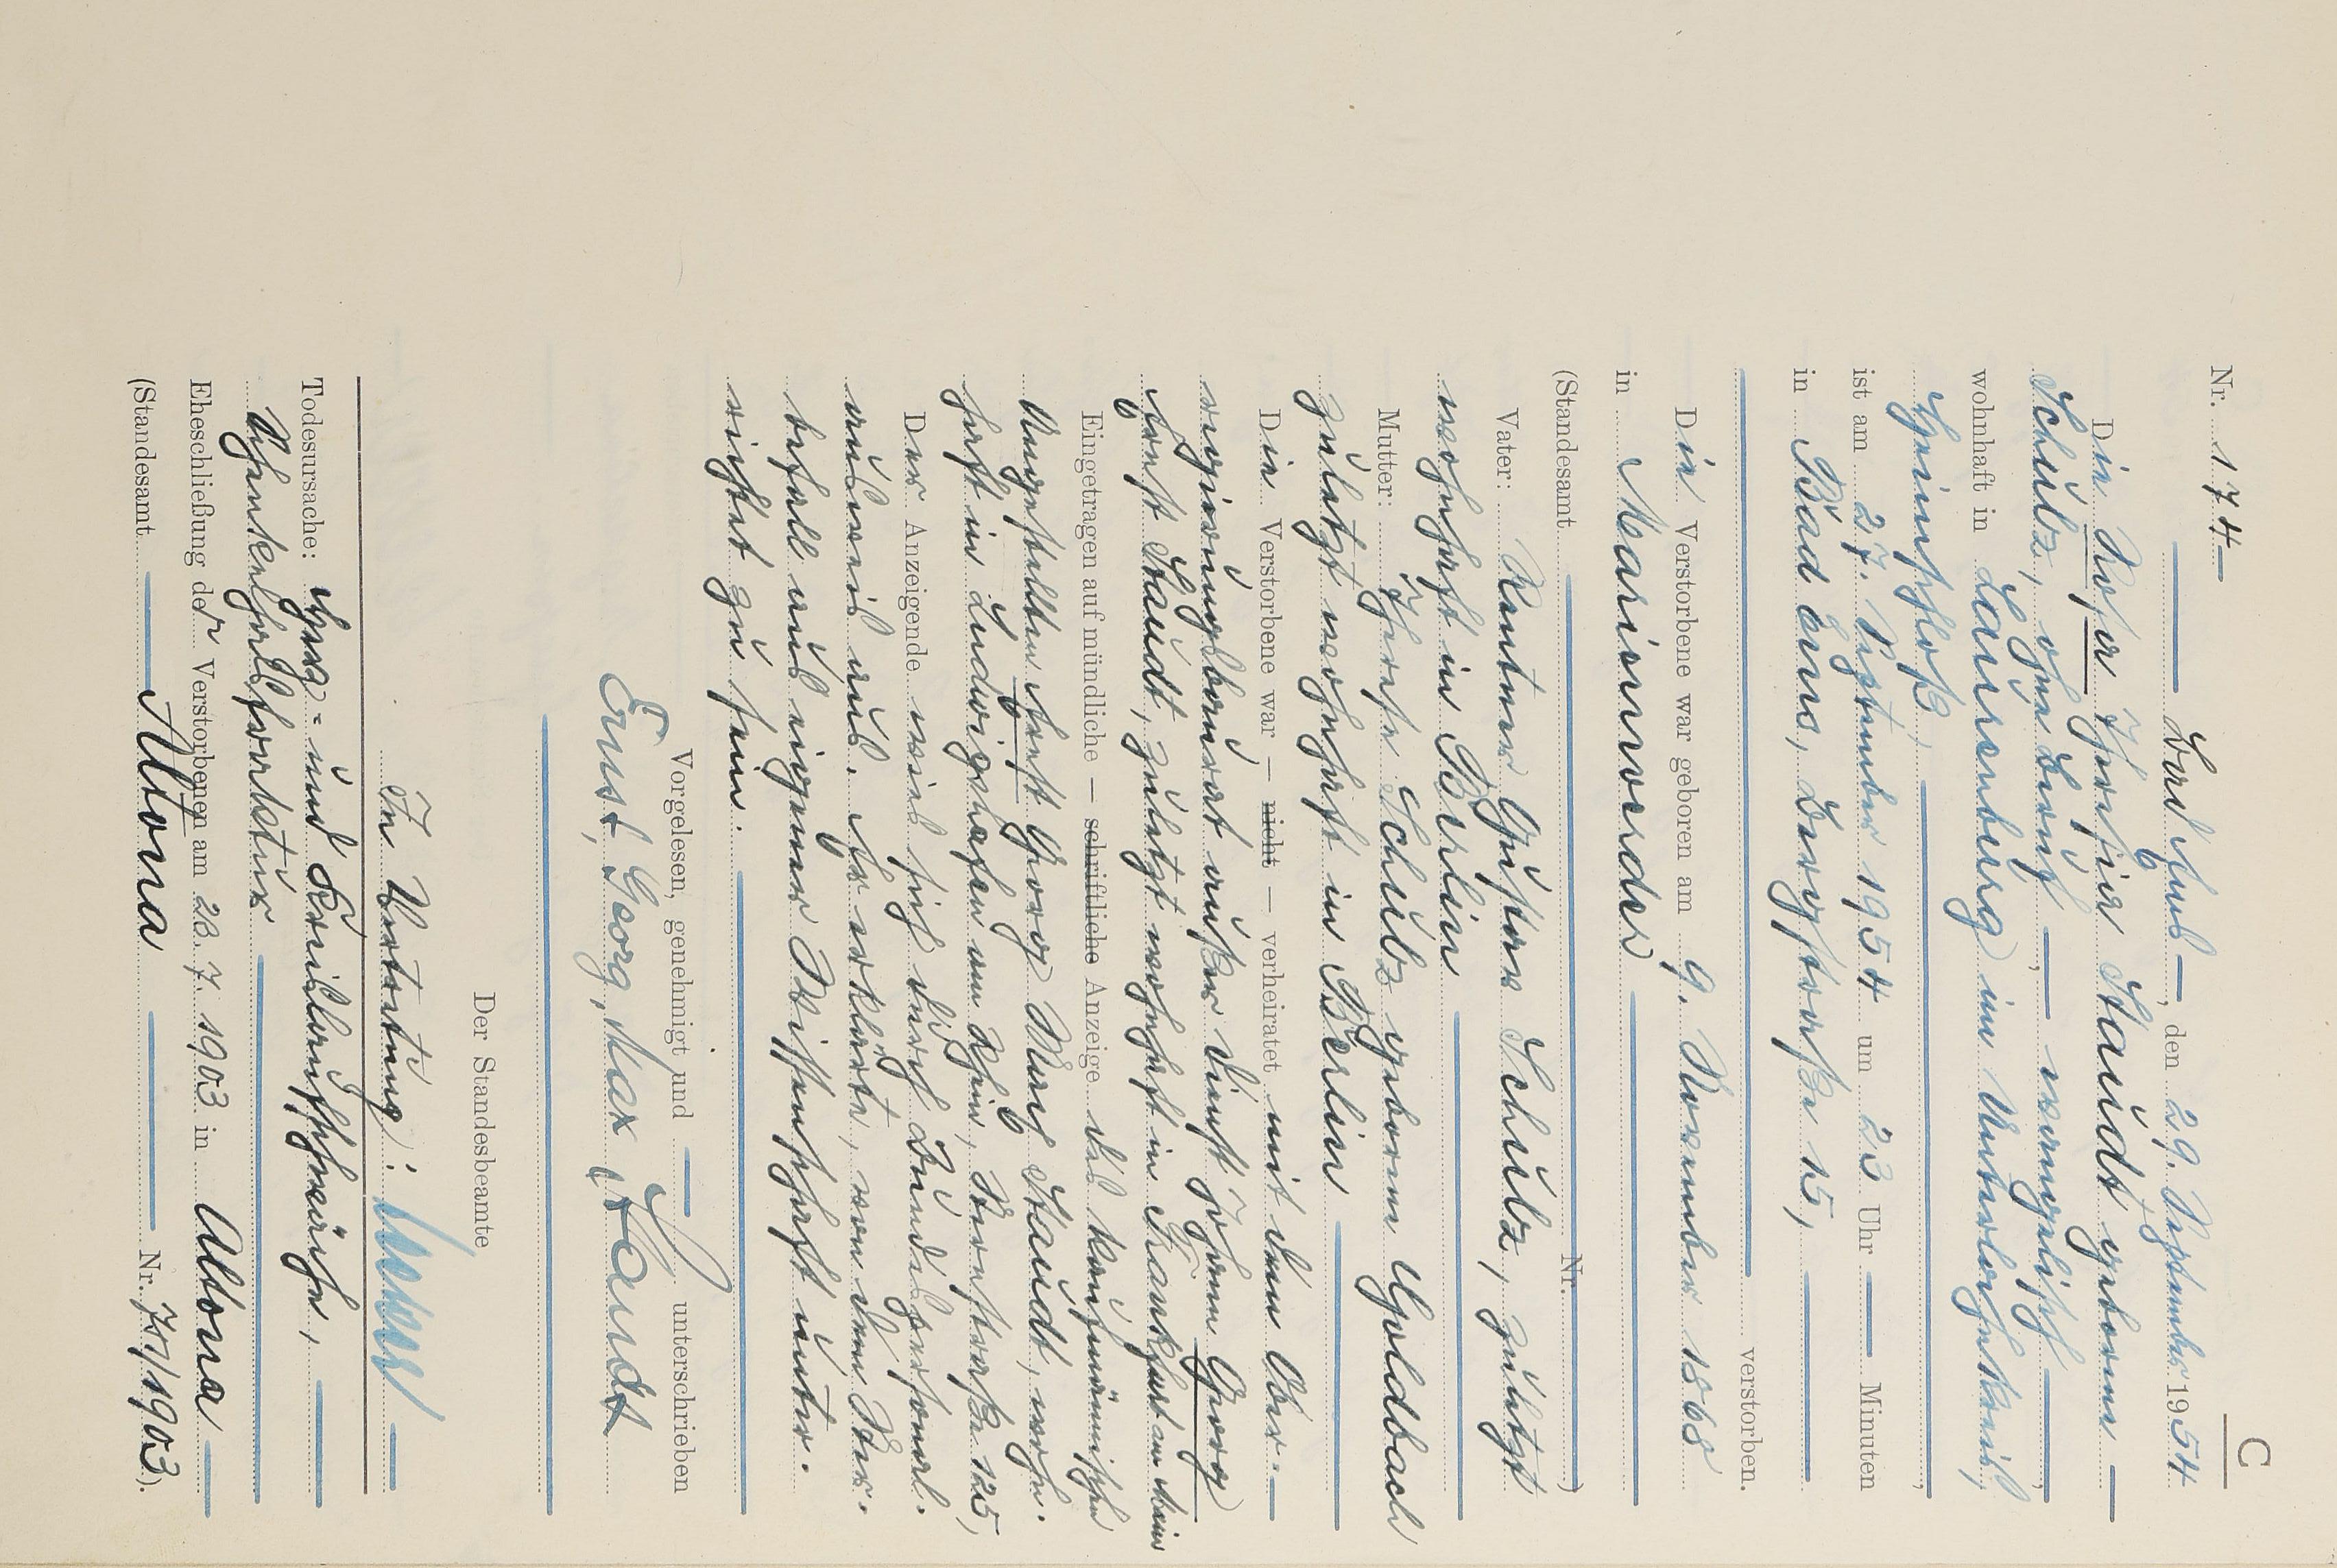 C
Nr. 174
Bad Ems, den 29. September 1954
Die Rosa Therese Staudt geborene
Schulz, ohne Beruf, evangelisch,
wohnhaft in Laurenburg im Unterlahnkreis,
ist am 27. September 1954 um 23 Uhr — Minuten
in Bad Ems, Bergstraße 15,
verstorben.
Die Verstorbene war geboren am 9. November 1868
in Marienwerder
(Standesamt Nr. )
Vater: Rentner Gustav Schulz, zuletzt
wohnhaft in Berlin
Mutter: Therese Schulz geborene Goldbach
zuletzt wohnhaft in Berlin
Die Verstorbene war — nicht — verheiratet mit dem Ober-
regierungsbaurat außer Dienst Johann Georg
Staudt, zuletzt wohnhaft in Frankfurt am Main
Eingetragen auf mündliche — schriftliche Anzeige des kaufmännischen
Angestellten Ernst Georg Max Staudt, wohn-
haft in Ludwigshafen am Rhein, 125,
Der Anzeigende wies sich durch Bundespersonal-
ausweis aus. Er erklärte, von dem Ster-
befall aus eigener Wissenschaft unter-
richtet zu sein.
Vorgelesen, genehmigt und — unterschrieben
Ernst, Georg, Max Staudt
Der Standesbeamte
In Vertretung:
Todesursache: Herz- und Kreislaufschwäche,
Schenkelhalsfraktur
Eheschließung der Verstorbenen am 28. 7. 1903 in Altona
(Standesamt Altona Nr. 757/1903).